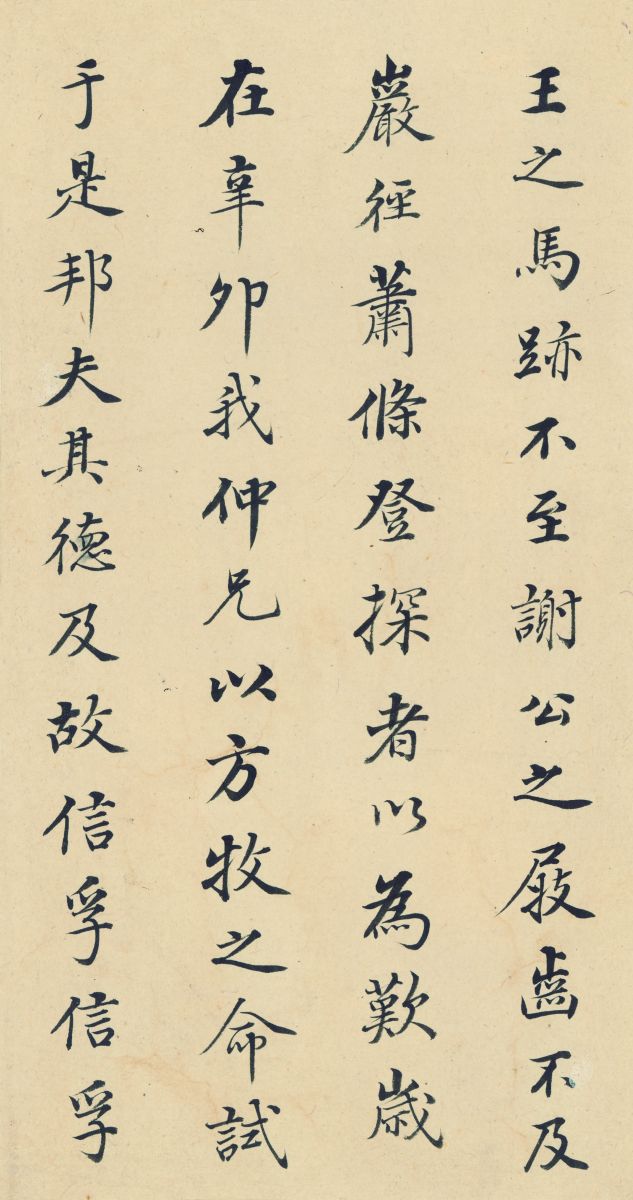 王之馬跡不至謝公之屐齒不及
巖徑蕭條登探者以為歎歲
在辛卯我仲兄以方牧之命試
于是邦夫其德及故信孚信孚